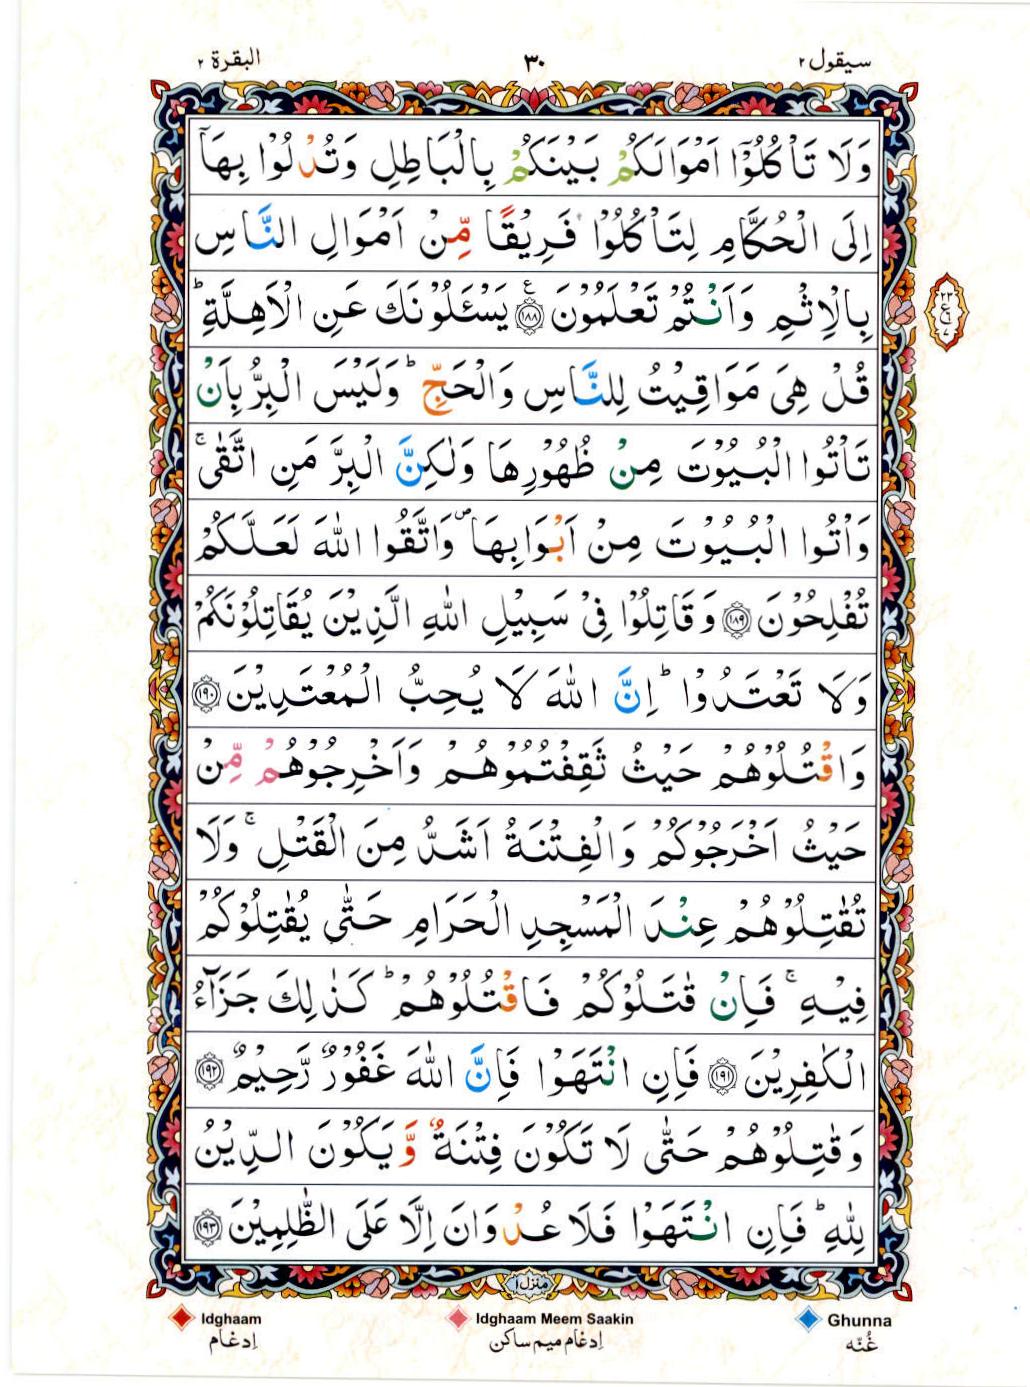 سيقول ٢
٣٠
البقرة ٢
وَلَا تَأْكُلُوْٓا اَمْوَالَكُمْ بَيْنَكُمْ بِالْبَاطِلِ وَتُدْلُوْا بِهَآ
اِلَى الْحُكَّامِ لِتَأْكُلُوْا فَرِيْقًا مِّنْ اَمْوَالِ النَّاسِ
بِالْاِثْمِ وَاَنْتُمْ تَعْلَمُوْنَ ۧ﴿١٨٨﴾ يَسْـَٔلُوْنَكَ عَنِ الْاَهِلَّةِ ؕ
قُلْ هِىَ مَوَاقِيْتُ لِلنَّاسِ وَالْحَجِّ ؕ وَلَيْسَ الْبِرُّ بِاَنْ
تَاْتُوا الْبُيُوْتَ مِنْ ظُهُوْرِهَا وَلٰكِنَّ الْبِرَّ مَنِ اتَّقٰى ۚ
وَاْتُوا الْبُيُوْتَ مِنْ اَبْوَابِهَا ۪ وَاتَّقُوا اللّٰهَ لَعَلَّكُمْ
تُفْلِحُوْنَ ﴿١٨٩﴾ وَقَاتِلُوْا فِىْ سَبِيْلِ اللّٰهِ الَّذِيْنَ يُقَاتِلُوْنَكُمْ
وَلَا تَعْتَدُوْا ؕ اِنَّ اللّٰهَ لَا يُحِبُّ الْمُعْتَدِيْنَ ﴿١٩٠﴾
وَاقْتُلُوْهُمْ حَيْثُ ثَقِفْتُمُوْهُمْ وَاَخْرِجُوْهُمْ مِّنْ
حَيْثُ اَخْرَجُوْكُمْ وَالْفِتْنَةُ اَشَدُّ مِنَ الْقَتْلِ ۚ وَلَا
تُقٰتِلُوْهُمْ عِنْدَ الْمَسْجِدِ الْحَرَامِ حَتّٰى يُقٰتِلُوْكُمْ
فِيْهِ ۚ فَاِنْ قٰتَلُوْكُمْ فَاقْتُلُوْهُمْ ؕ كَذٰلِكَ جَزَآءُ
الْكٰفِرِيْنَ ﴿١٩١﴾ فَاِنِ انْتَهَوْا فَاِنَّ اللّٰهَ غَفُوْرٌ رَّحِيْمٌ ﴿١٩٢﴾
وَقٰتِلُوْهُمْ حَتّٰى لَا تَكُوْنَ فِتْنَةٌ وَّيَكُوْنَ الدِّيْنُ
لِلّٰهِ ؕ فَاِنِ انْتَهَوْا فَلَا عُدْوَانَ اِلَّا عَلَى الظّٰلِمِيْنَ ﴿١٩٣﴾
منزل ١
Idghaam
Idghaam Meem Saakin
Ghunna
اِدغام
اِدغام میم ساکن
غُنّه